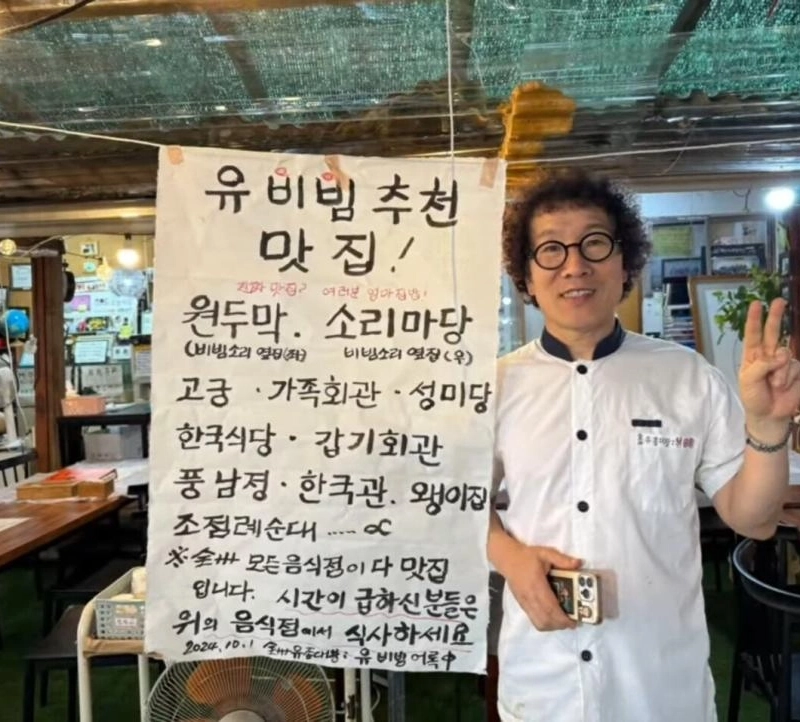 유비빔 추천
맛집!
진짜 맛집? 여러분 엄마집밥!
원두막. 소리마당
(비빔소리 옆집(좌) 비빔소리 옆집(우)
고궁 · 가족회관 · 성미당
한국식당 · 갑기회관
풍남정 · 한국관. 왱이집
조점례순대 ..... ∝
※全州 모든음식점이 다 맛집
입니다. 시간이 급하신분들은
위의 음식점에서 식사하세요
2024.10.1 유비빔어록中